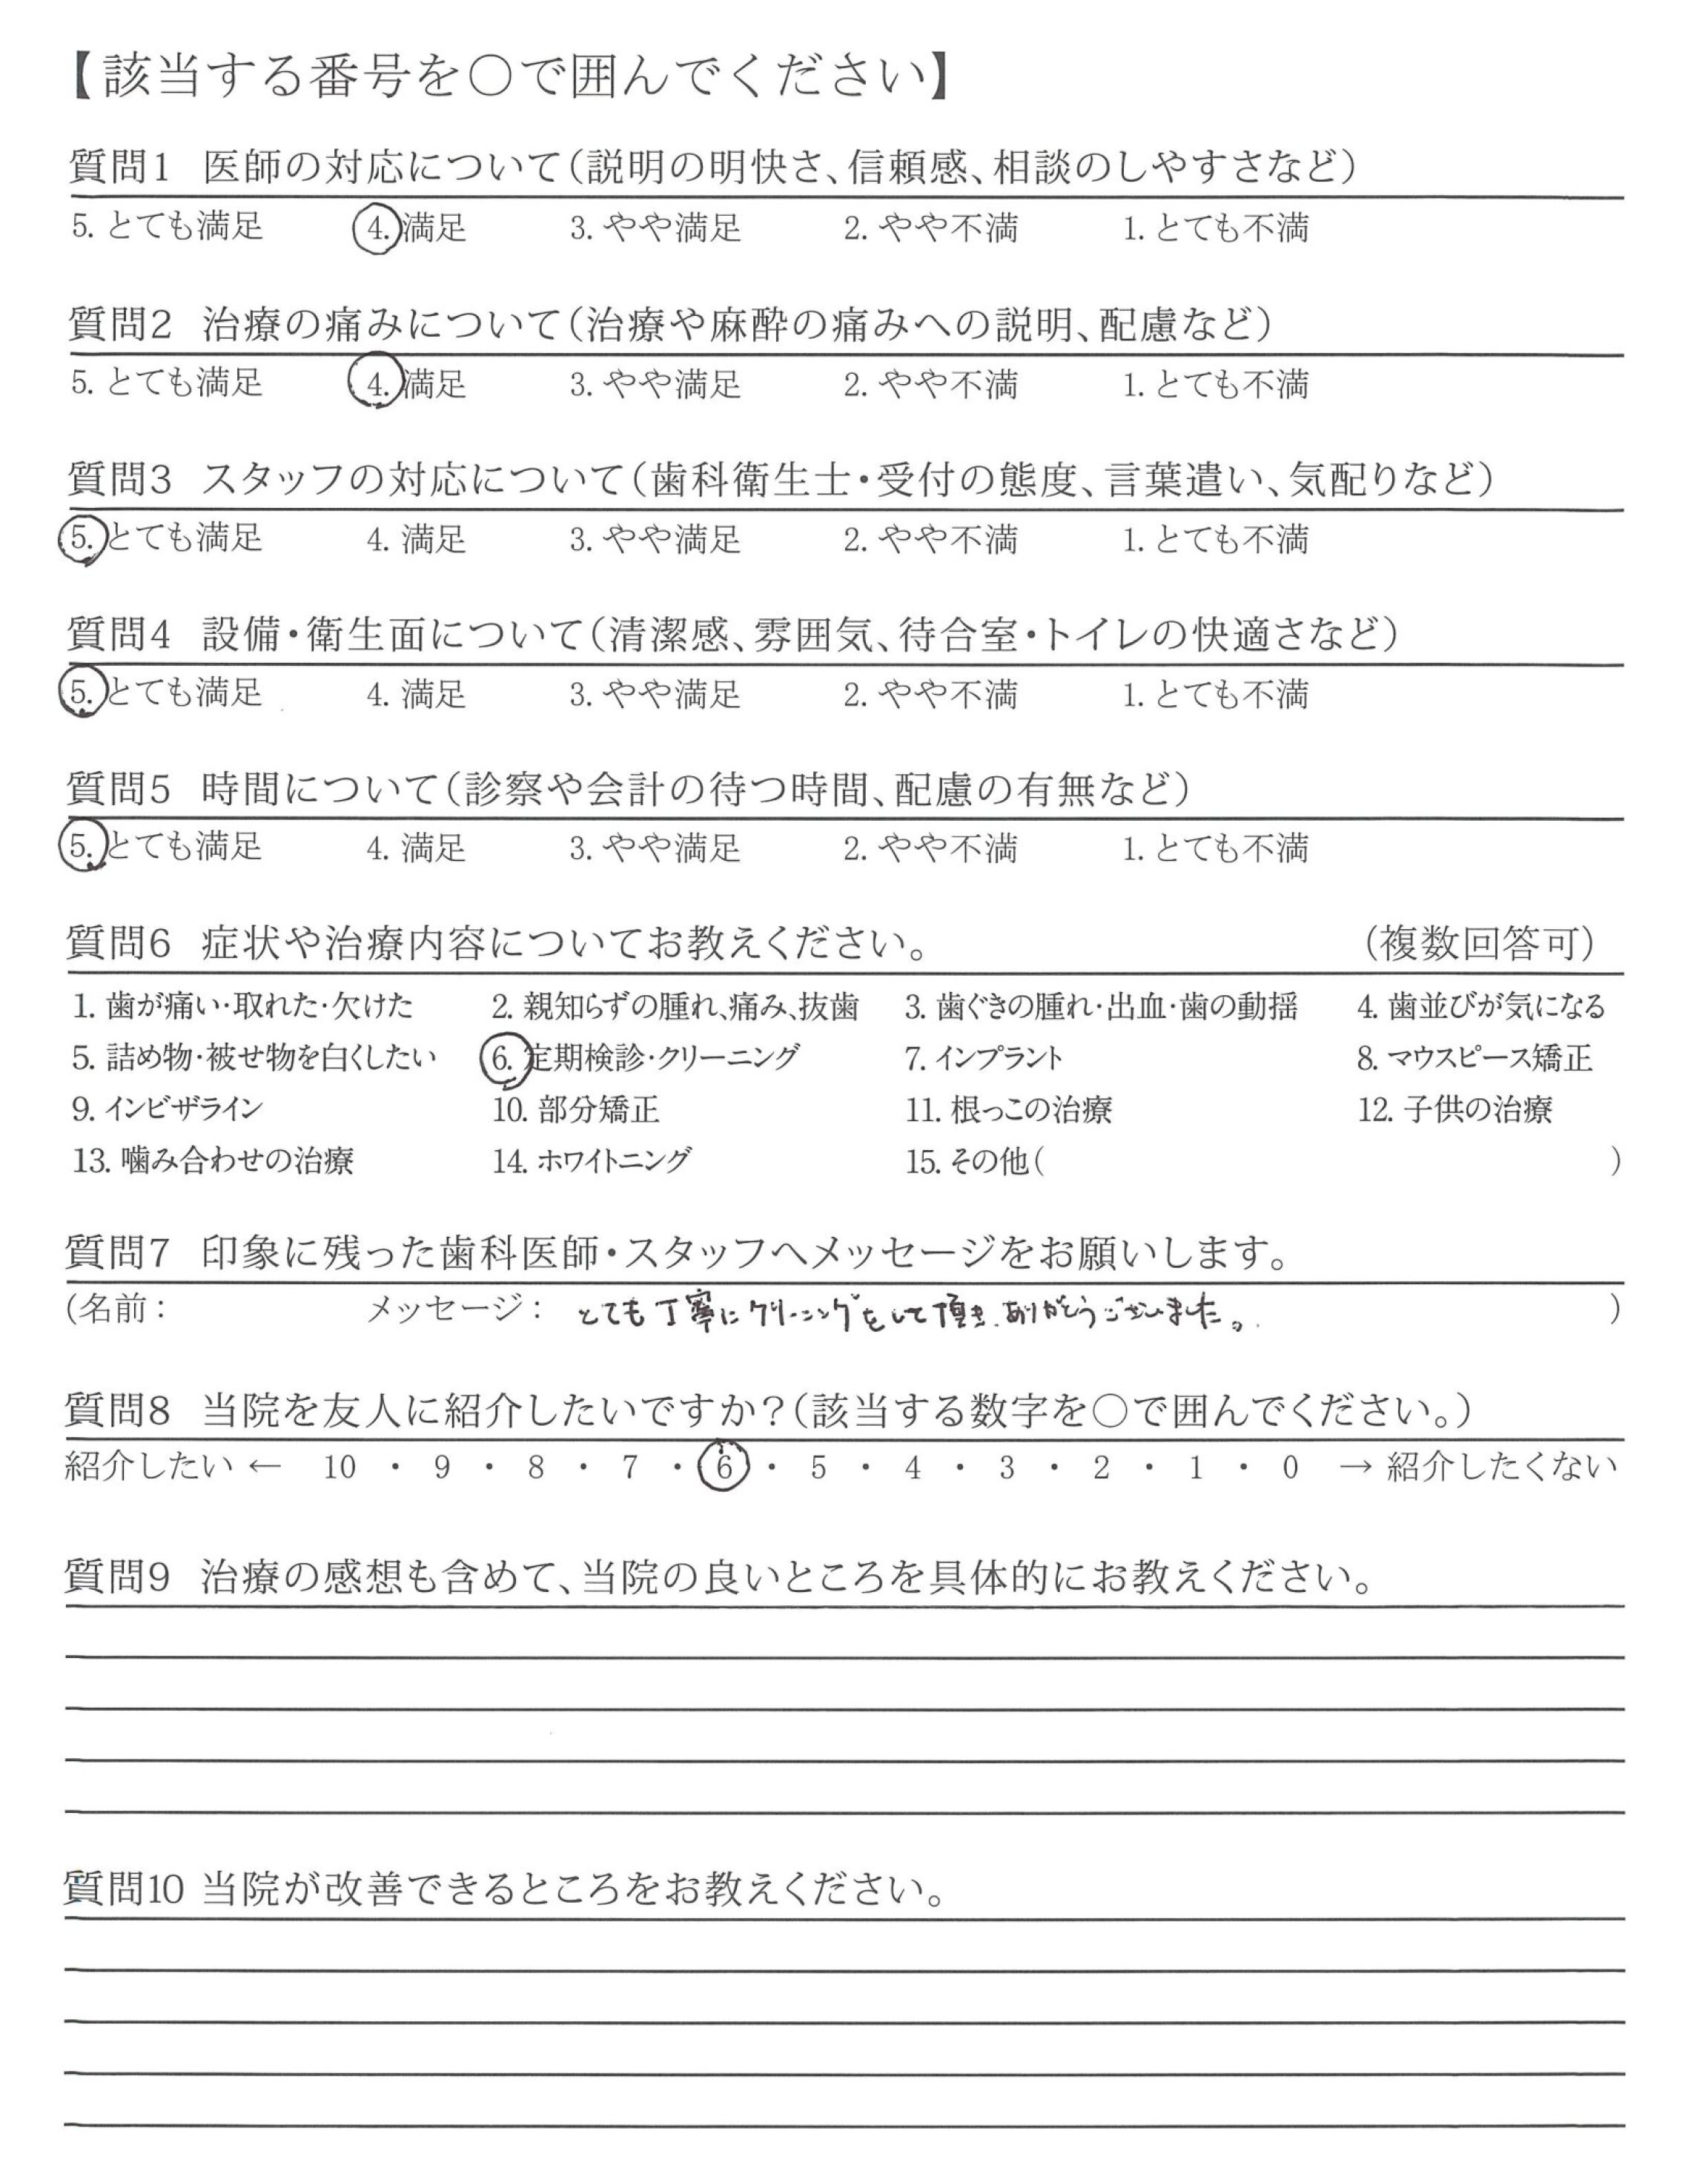 【該当する番号を○で囲んでください】
質問1 医師の対応について（説明の明快さ、信頼感、相談のしやすさなど）
5. とても満足 4. 満足 3. やや満足 2. やや不満 1. とても不満
質問2 治療の痛みについて（治療や麻酔の痛みへの説明、配慮など）
5. とても満足 4. 満足 3. やや満足 2. やや不満 1. とても不満
質問3 スタッフの対応について（歯科衛生士・受付の態度、言葉遣い、気配りなど）
5. とても満足 4. 満足 3. やや満足 2. やや不満 1. とても不満
質問4 設備・衛生面について（清潔感、雰囲気、待合室・トイレの快適さなど）
5. とても満足 4. 満足 3. やや満足 2. やや不満 1. とても不満
質問5 時間について（診察や会計の待つ時間、配慮の有無など）
5. とても満足 4. 満足 3. やや満足 2. やや不満 1. とても不満
質問6 症状や治療内容についてお教えください。 （複数回答可）
1. 歯が痛い・取れた・欠けた 2. 親知らずの腫れ、痛み、抜歯 3. 歯ぐきの腫れ・出血・歯の動揺 4. 歯並びが気になる
5. 詰め物・被せ物を白くしたい 6. 定期検診・クリーニング 7. インプラント 8. マウスピース矯正
9. インビザライン 10. 部分矯正 11. 根っこの治療 12. 子供の治療
13. 噛み合わせの治療 14. ホワイトニング 15. その他（ ）
質問7 印象に残った歯科医師・スタッフへメッセージをお願いします。
（名前： メッセージ： とても丁寧にクリーニングをして頂き、ありがとうございました。 ）
質問8 当院を友人に紹介したいですか？（該当する数字を○で囲んでください。）
紹介したい ← 10 ・ 9 ・ 8 ・ 7 ・ 6 ・ 5 ・ 4 ・ 3 ・ 2 ・ 1 ・ 0 → 紹介したくない
質問9 治療の感想も含めて、当院の良いところを具体的にお教えください。
質問10 当院が改善できるところをお教えください。